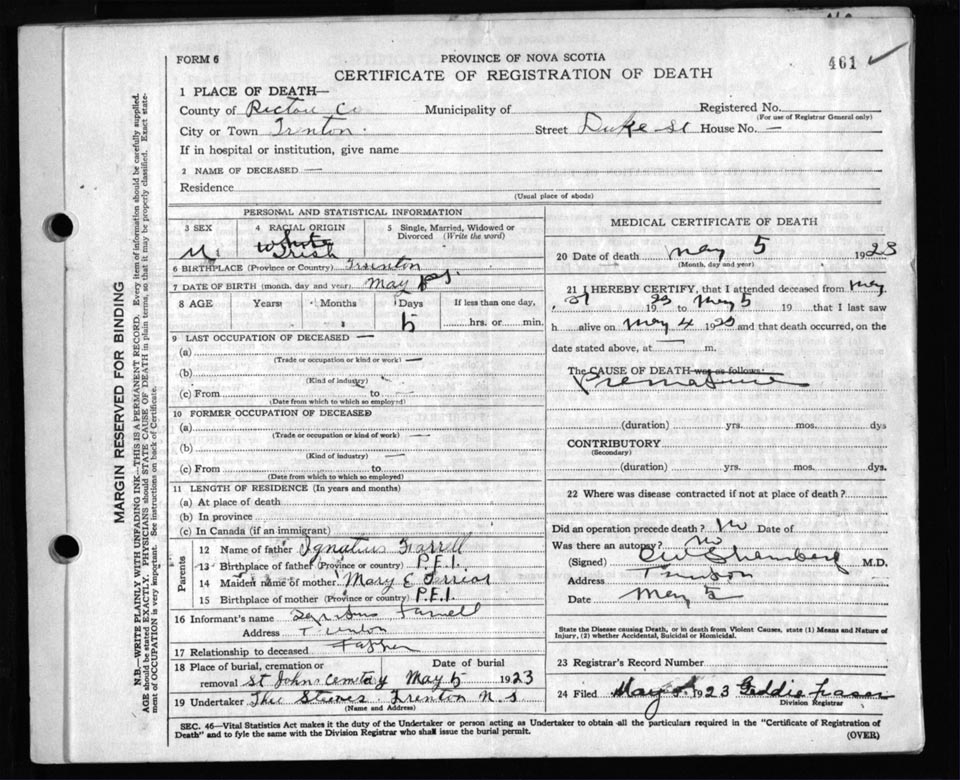 FORM 6
PROVINCE OF NOVA SCOTIA
CERTIFICATE OF REGISTRATION OF DEATH
461 ✓
1 PLACE OF DEATH—
County of Pictou Co Municipality of Registered No.
(For use of Registrar General only)
City or Town Trnton. Street Duke St House No. —
If in hospital or institution, give name
2 NAME OF DECEASED —
Residence
(Usual place of abode)
PERSONAL AND STATISTICAL INFORMATION
3 SEX 4 RACIAL ORIGIN 5 Single, Married, Widowed or Divorced (Write the word)
M. White
Irish
6 BIRTHPLACE (Province or Country) Trenton
7 DATE OF BIRTH (month, day and year) May
8 AGE Years Months Days If less than one day,
5 hrs. or min.
9 LAST OCCUPATION OF DECEASED —
(a)
(Trade or occupation or kind or work) —
(b)
(Kind of industry)
(c) From to —
(Date from which to which so employed)
10 FORMER OCCUPATION OF DECEASED
(a)
(Trade or occupation or kind of work) —
(b)
(Kind of industry) —
(c) From to
(Date from which to which so employed)
11 LENGTH OF RESIDENCE (In years and months)
(a) At place of death
(b) In province
(c) In Canada (if an immigrant)
Parents
12 Name of father Ignatius Farrell
13 Birthplace of father (Province or country) P.E.I.
14 Maiden name of mother Mary E
15 Birthplace of mother (Province or country) P.E.I.
16 Informant's name Ignatius Farrell
Address Trenton
17 Relationship to deceased Father
18 Place of burial, cremation or removal Date of burial
St Johns Cemetery May 5 1923
19 Undertaker Thu Steeves Trenton N. S
(Name and Address)
MEDICAL CERTIFICATE OF DEATH
20 Date of death May 5 1923
(Month, day and year)
21 I HEREBY CERTIFY, that I attended deceased from May
1923 to May 5 19 that I last saw
h alive on May 4 1923 and that death occurred, on the
date stated above, at — m.
The CAUSE OF DEATH was as follows:
Premature
(duration) yrs. mos. dys
CONTRIBUTORY
(Secondary)
(duration) yrs. mos. dys.
22 Where was disease contracted if not at place of death?
Did an operation precede death? No Date of
Was there an autopsy? No
(Signed) M.D.
Address Trenton
Date May 5
State the Disease causing Death, or in death from Violent Causes, state (1) Means and Nature of
Injury, (2) whether Accidental, Suicidal or Homicidal.
23 Registrar's Record Number
24 Filed May 1923 Geddie Fraser
Division Registrar
SEC. 46—Vital Statistics Act makes it the duty of the Undertaker or person acting as Undertaker to obtain all the particulars required in the "Certificate of Registration of
Death" and to fyle the same with the Division Registrar who shall issue the burial permit.
(OVER)
MARGIN RESERVED FOR BINDING
N.B.—WRITE PLAINLY WITH UNFADING INK—THIS IS A PERMANENT RECORD. Every item of information should be carefully supplied.
AGE should be stated EXACTLY. PHYSICIANS should STATE CAUSE OF DEATH in plain terms, so that it may be properly classified. Exact state-
ment of OCCUPATION is very important. See instructions on back of Certificate.